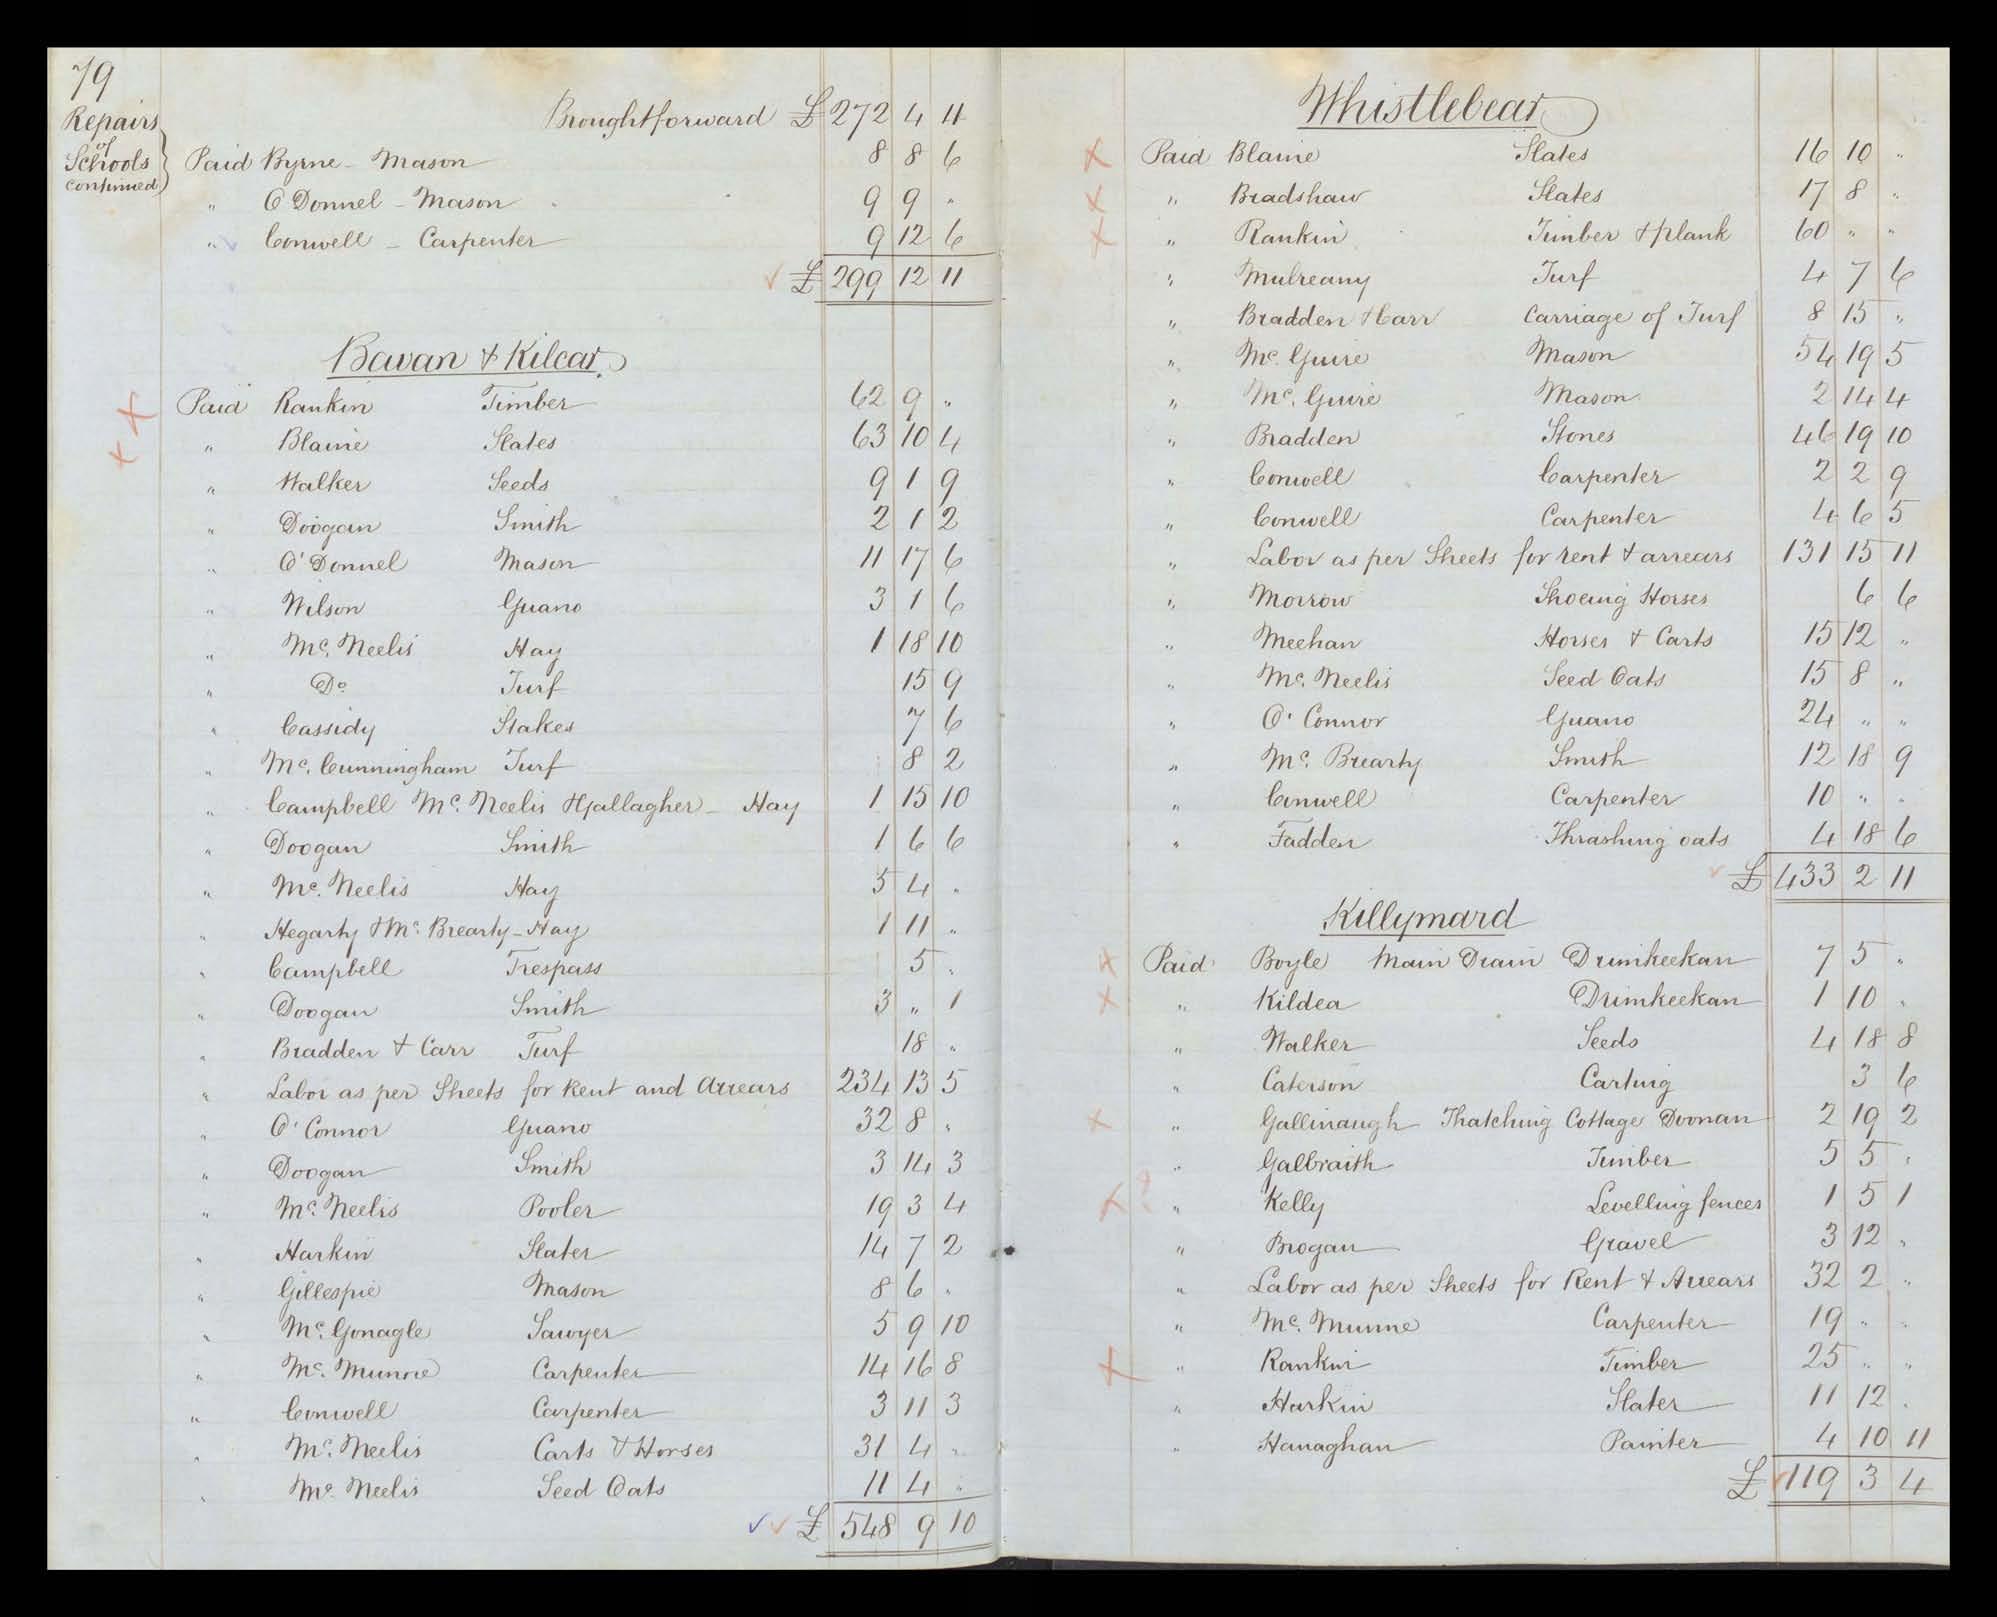 79
Repairs
of
Schools
continued
Broughtforward £ 272 4 11
Paid Byrne - Mason 8 8 6
" O'Donnel - Mason 9 9 "
" Conwell - Carpenter 9 12 6
£ 299 12 11
Bavan & Kilcar
Paid Rankin Timber 62 9 "
" Blaine Slates 63 10 4
" Walker Seeds 9 1 9
" Doogan Smith 2 1 2
" O'Donnel Mason 11 17 6
" Wilson Guano 3 1 6
" Mc. Neelis Hay 1 18 10
" Do Turf 15 9
" Cassidy Stakes 7 6
" Mc. Cunningham Turf 8 2
" Campbell Mc. Neelis & Gallagher - Hay 1 15 10
" Doogan Smith 1 6 6
" Mc. Neelis Hay 5 4 "
" Hegarty & Mc. Brearty - Hay 1 11 "
" Campbell Trespass 5 "
" Doogan Smith 3 " 1
" Bradden & Carr Turf 18 "
" Labor as per Sheets for Rent and Arrears 234 13 5
" O'Connor Guano 32 8 "
" Doogan Smith 3 14 3
" Mc. Neelis Pooler 19 3 4
" Harkin Slater 14 7 2
" Gillespie Mason 8 6 "
" Mc. Gonagle Sawyer 5 9 10
" Mc. Munne Carpenter 14 16 8
" Conwell Carpenter 3 11 3
" Mc. Neelis Carts & Horses 31 4 "
" Mc. Neelis Seed Oats 11 4 "
£ 548 9 10
Whistlebear
Paid Blaine Slates 16 10 "
" Bradshaw Slates 17 8 "
" Rankin Timber & plank 60 " "
" Mulreany Turf 4 7 6
" Bradden & Carr Carriage of Turf 8 15 "
" Mc. Guire Mason 54 19 5
" Mc. Guire Mason 2 14 4
" Bradden Stones 46 19 10
" Conwell Carpenter 2 2 9
" Conwell Carpenter 4 6 5
" Labor as per Sheets for rent & arrears 131 15 11
" Morrow Shoeing Horses 6 6
" Meehan Horses & Carts 15 12 "
" Mc. Neelis Seed Oats 15 8 "
" O'Connor Guano 24 " "
" Mc. Brearty Smith 12 18 9
" Conwell Carpenter 10 " "
" Fadden Thrashing oats 4 18 6
£ 433 2 11
Killymard
Paid Boyle Main Drain Drimkeekan 7 5 "
" Kildea Drimkeekan 1 10 "
" Walker Seeds 4 18 8
" Caterson Carting 3 6
" Gallinaugh Thatching Cottage Doonan 2 19 2
" Galbraith Timber 5 5 "
" Kelly Levelling fences 1 5 1
" Brogan Gravel 3 12 "
" Labor as per Sheets for Rent & Arrears 32 2 "
" Mc. Munne Carpenter 19 " "
" Rankin Timber 25 " "
" Harkin Slater 11 12 "
" Hanaghan Painter 4 10 11
£ 119 3 4